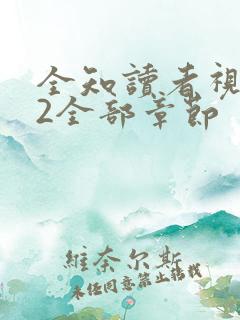 全知讀者視
2全部章節
維奈尔斯
未经同意禁止转载